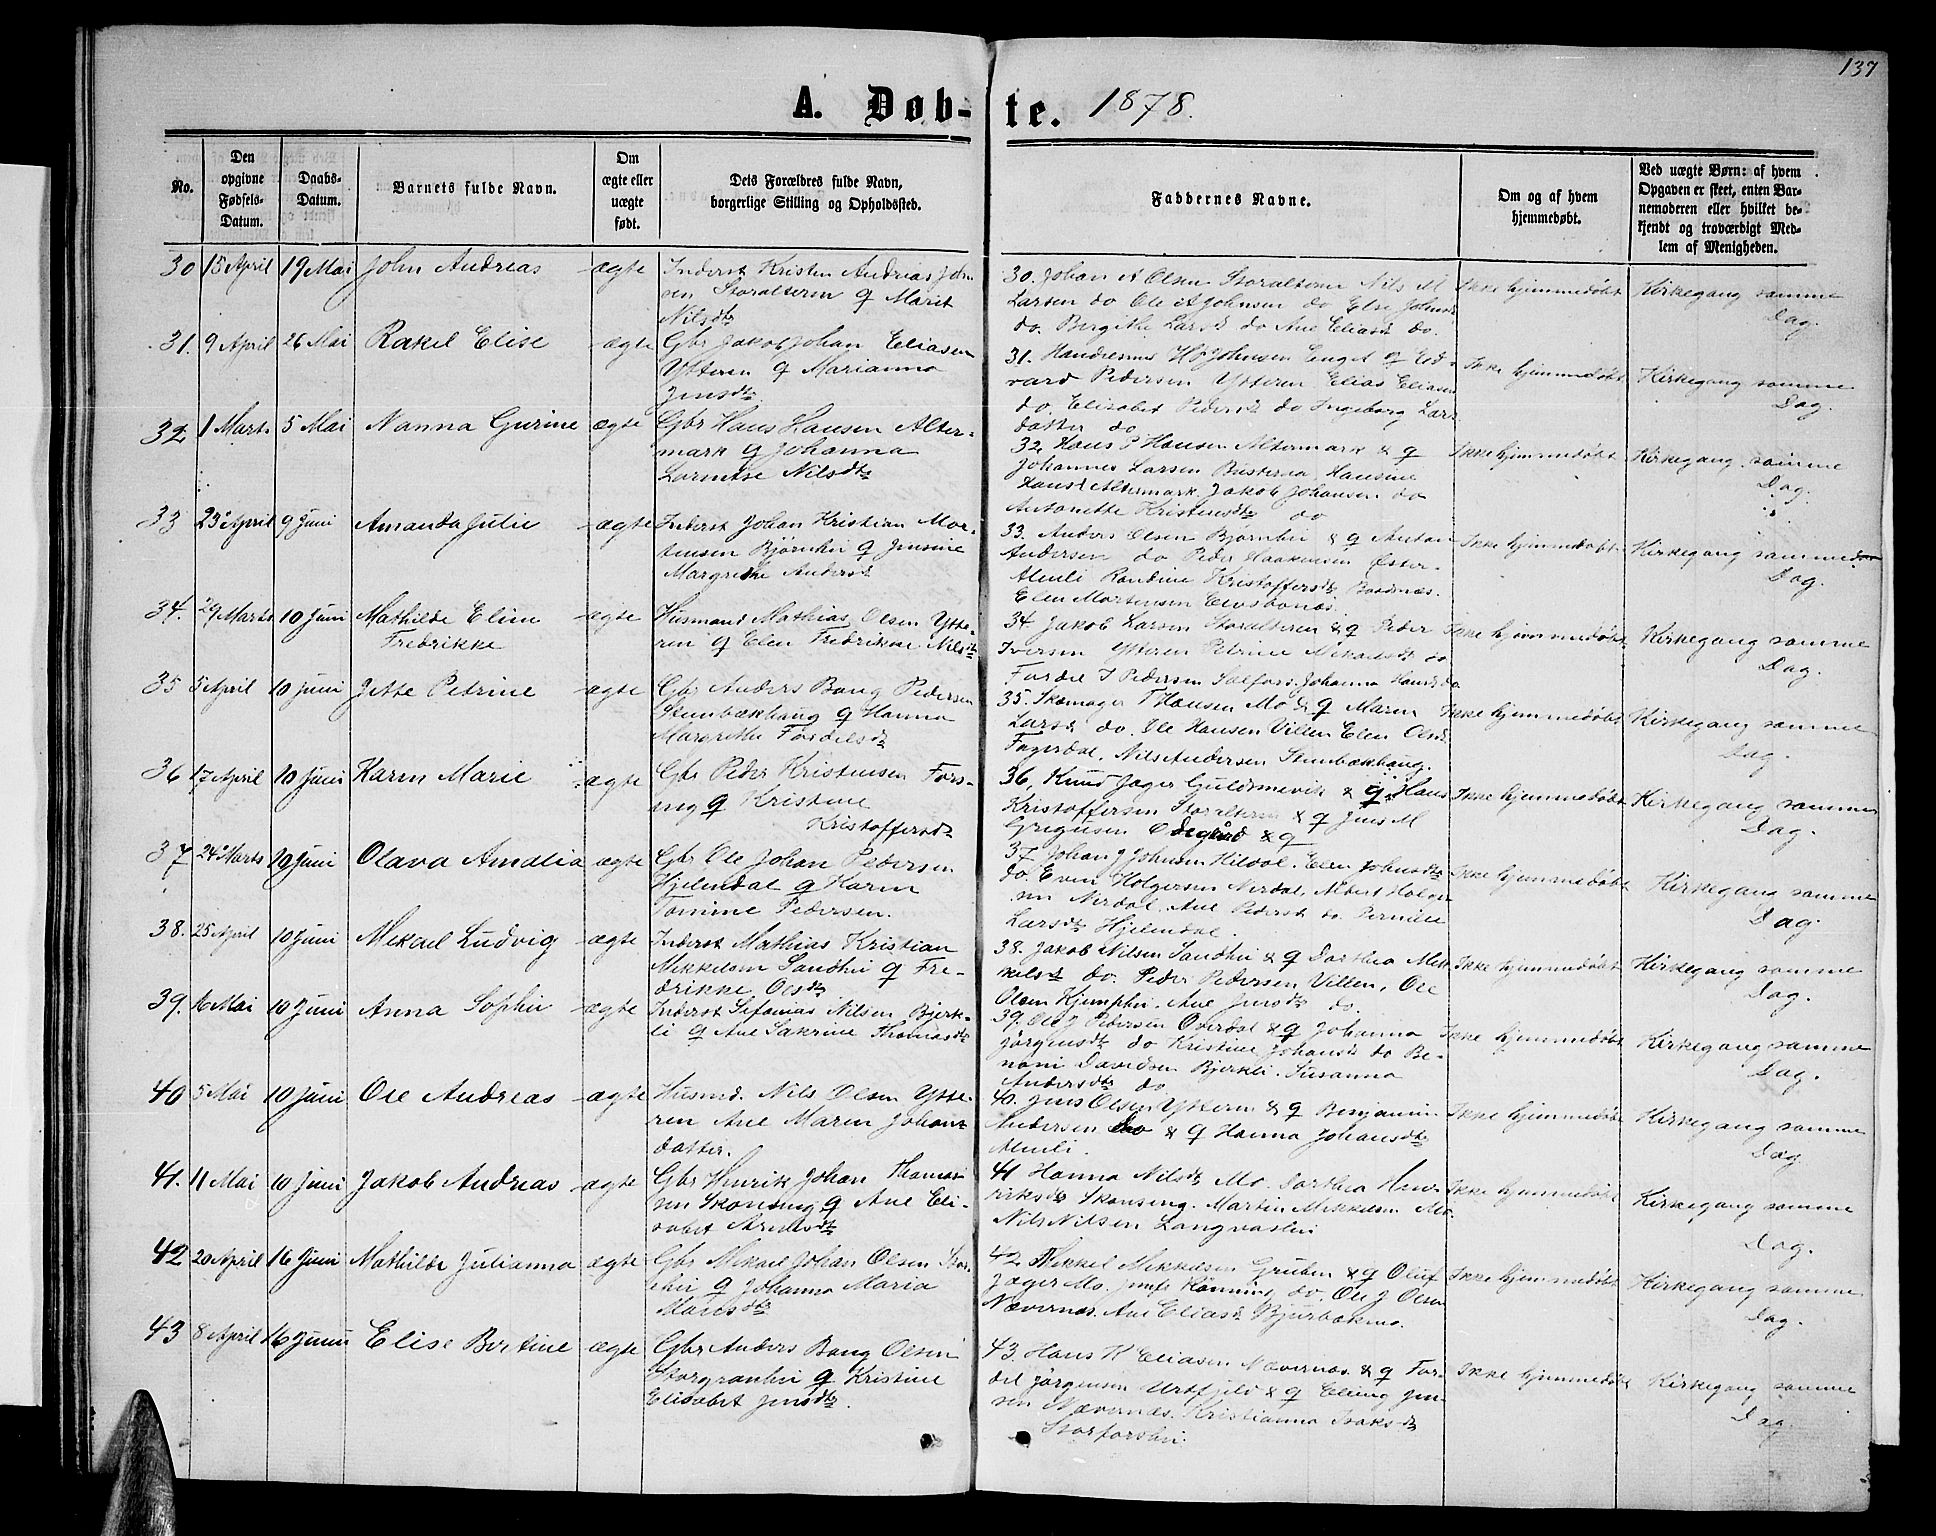 137
A. Døb-te. 1878.
No.
Den opgivne Fødsels-Datum.
Daabs-Datum.
Barnets fulde Navn.
Om ægte eller uægte født.
Dets Forældres fulde Navn, borgerlige Stilling og Opholdssted.
Faddernes Navne.
Om og af hvem hjemmedøbt.
Ved uægte Børn: af hvem Opgaven er skeet, enten Barnemoderen eller hvilket bekjendt og troværdigt Medlem af Menigheden.
30 15 April 19 Mai John Andreas ægte Inderst Kristen Andreas John
sen Storalteren g Marit
Nilsdtr
30. Johan A Olsen Storalteren Nils M
Larsen do Ole A Johnsen do Else Johnsd
do. Bergithe Larsd do Ane Eliasd do.
Ikke hjemmedøbt Kirkegang samme
Dag.
31. 9 April 26 Mai Rakel Elise ægte Gbr Jakob Johan Eliasen
Ytteren g Marianna
Jensdtr.
31. Handelsm H J Johnsen Enget g Ed-
vard Pedersen Ytteren Elias Eliasen
do. Elisabet Pedersd do Ingeborg Lars
datter do
Ikke hjemmedøbt Kirkegang samme
Dag.
32 1 Marts 5 Mai Nanna Gurine ægte Gbr Hans Hansen Alter-
mark g Johanna
Lorntse Nilsdtr
32 Hans P Hansen Altermark & g
Johannes Larsen Hansine
Hansd Altermark Jakob Johansen do
Antonette Kristensdtr do
Ikke hjemmedøbt Kirkegang samme
Dag.
33 23 April 9 Juni Amanda Julie ægte Inderst Johan Kristian Mor-
tensen Bjørnhei g Jensine
Margrethe Andersd
33. Anders Olsen Bjørnhei & g Anton
Andersen do Peder Haakensen Øster-
Almli Randine Kristoffersd Baadnæs.
Elen Mortensen
Ikke hjemmedøbt Kirkegang samme
Dag.
34. 29 Marts 10 Juni Mathilde Eline
Fredrikke
ægte Husmand Mathias Olsen Ytte-
ren g Elen Fredrikke Nilsdtr
34 Jakob Larsen Storalteren & g Peder
Iversen Ytteren Petrine Mikalsd do
Fordel I Pedersen Selfors. Johanna Hansd do
Ikke hjemmedøbt Kirkegang samme
Dag.
35 5 April 10 Juni Jette Petrine ægte Gbr Anders Bang Pedersen
Stenbækhaug g Hanna
Margrethe Fordelsd
35. Skomager T Hansen Mo & g Maren
Larsd do. Ole Hansen Villen Elen Olsd
Fagerdal, Nils Andersen Stenbækhaug.
Ikke hjemmedøbt Kirkegang samme
Dag.
36 17 April 10 Juni Karen Marie ægte Gbr Peder Kristensen Fors-
eng g Kristine
Kristoffersdtr
36, Knud Jager Guldsmevik & g. Hans
Kristoffersen Storalteren & g Jens M
Gregusen Ødegård & g
Ikke hjemmedøbt Kirkegang samme
Dag.
37 24 Marts 10 Juni Olava Amalia ægte Gbr Ole Johan Pedersen
Hjelmdal g Karen
Tomine Pedersen.
37 Johan J Johnsen Hildal. Elen Johnsdtr
do. Even Holgersen Nerdal. Albert Holger
sen Nerdal. Ane Pedersd do. Pernille
Larsdtr Hjelmdal.
Ikke hjemmedøbt Kirkegang samme
Dag.
38. 25 April 10 Juni Mekael Ludvig ægte Inderst Mathias Kristian
Mikkelsen Sandhei g Fre-
drikke Olsdtr
38. Jakob Nilsen Sandhei & g Dorthea Mik
kelsd do. Peder Pedersen Villen, Ole
Olsen Kjemphei. Ane Jensdtr do.
Ikke hjemmedøbt Kirkegang samme
Dag.
39. 16 Mai 10 Juni Anna Sophie ægte Inderst Sefanias Nilsen Bjerk-
li g Ane Sakrine Thomasdtr
39. Ole J Pedersen Overdal & g Johanna
Jørgensdtr do Kristine Johansd do Be-
noni Davidsen Bjerkli. Susanna
Andersdtr do
Ikke hjemmedøbt Kirkegang samme
Dag.
40 5 Mai 10 Juni Ole Andreas ægte Husmd. Nils Olsen Ytte-
ren Ane Maren Johans
datter.
40. Jens Olsen Ytteren & g Benjamin
Andersen do & g Hanna Johansdtr
Almli.
Ikke hjemmedøbt Kirkegang samme
Dag.
41. 11 Mai 10 Juni Jakob Andreas ægte Gbr Henrik Johan Thomas-
sen Skonseng g Ane Eli-
sabet Arntsdtr
41 Hanna Nilsdtr Mo. Dorthea Hen-
riksdtr Skonseng. Martin Mikkelsen Mo.
Nils Nilsen Langvashei
Ikke hjemmedøbt Kirkegang samme
Dag.
42 20 April 16 Juni Mathilde Julianna ægte Gbr Mikael Johan Olsen Stor-
hei g Johanna Maria
Monsdtr
42 Mikkel Mikkelsen Gruben & g Oluf
Jæger Mo. Jomf Rønning do. Ole J Olsen
Nævernæs. Ane Eliasd Bjurbækmo.
Ikke hjemmedøbt Kirkegang samme
Dag.
43 8 April 16 Juni Elise Bertine ægte Gbr Anders Bang Olsen
Storgranhei g Kristine
Elisabet Jensdtr.
43. Hans K Eliasen Nævernæs & g For-
del Jørgensen Urtfjeld & g Eling Jen-
sen Nævernæs. Kristianna Isaksd
Storforshei.
Ikke hjemmedøbt Kirkegang samme
Dag.